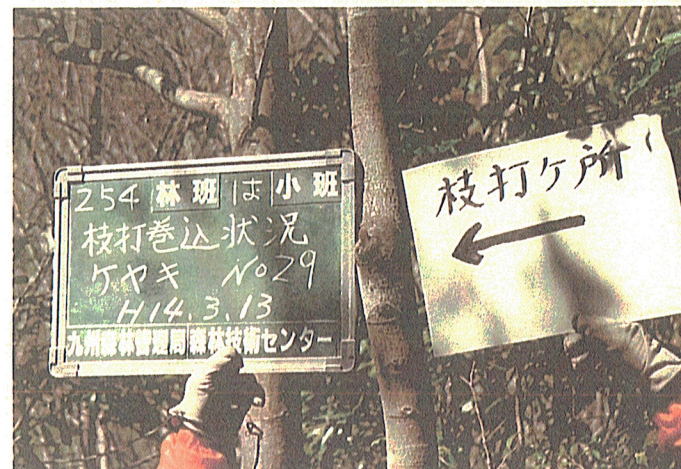 254 林班 は 小班
枝打巻込状況
ケヤキ No29
H14.3.13
九州森林管理局 森林技術センター
枝打ケ所